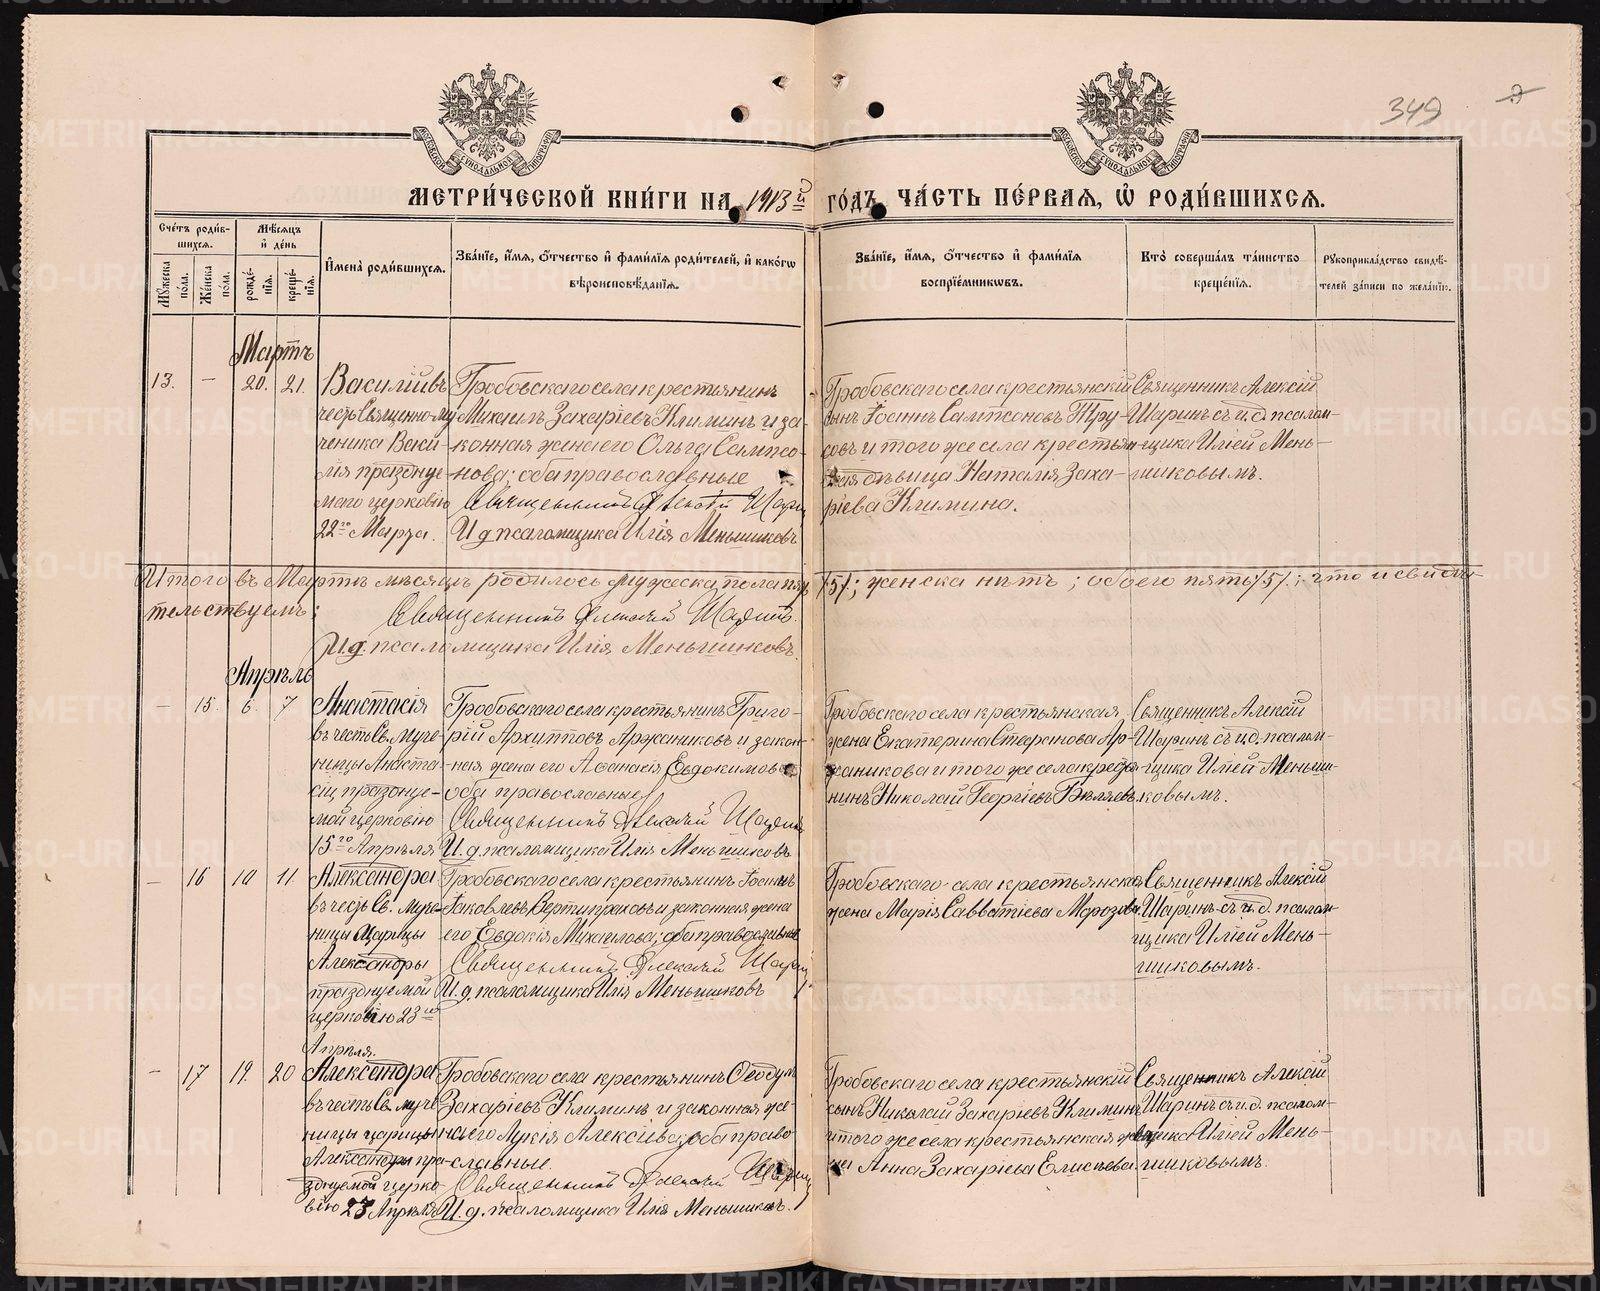 349
МЕТРИ́ЧЕСКОЙ КНИ́ГИ НА 1913й ГО́ДЪ, ЧА́СТЬ ПЕ́РВАЯ, Ѡ РОДИ́ВШИХСЯ.
Сче́тъ роди́в-
шихся.
Мѣ́сяцъ
и де́нь
Му́жеска
по́ла.
Же́нска
по́ла.
рожде́-
нія.
креще́-
нія.
Имена̀ роди́вшихся.
Зва́ніе, и́мя, о́тчество и фами́лія роди́телей, и како́гѡ
вѣроисповѣ́данія.
Зва́ніе, и́мя, о́тчество и фами́лія
воспріе́мниковъ.
Кто̀ соверша́лъ та́инство
креще́нія.
Рукоприкла́дство свидѣ́-
телей за́писи по жела́нію.
Мартъ
13. — 20. 21.
Василій въ
честь Священно-му
ченика Васи-
лія празднуе-
маго церковію
22го Марта.
Гробовскаго села крестьянинъ
Михаилъ Захаріевъ Климинъ и за-
конная жена его Ольга Сампсо-
нова; оба православные
Священникъ Алексій Шаринъ
И. д. псаломщика Илія Меньшиковъ
Гробовскаго села крестьянскій
сынъ Іоаннъ Сампсоновъ Тру-
совъ и того же села крестьян-
ская дѣвица Наталія Заха-
ріева Климина.
Священникъ Алексій
Шаринъ съ и. д. псалом-
щика Иліей Мень-
шиковымъ.
Итого въ Мартѣ мѣсяцѣ родилось мужеска пола пять /5/; женска нѣтъ; обоего пять /5/; что и свидѣ-
тельствуемъ:
Священникъ Алексій Шаринъ.
И. д. псаломщика Илія Меньшиковъ.
Апрѣль
— 15. 6. 7
Анастасія
въ честь Св. муче-
ницы Анаста-
сіи празднуе-
мой церковію
15го Апрѣля
Гробовскаго села крестьянинъ Григо-
рій Архипповъ Аржанниковъ и закон-
ная жена его Аѳанасія Евдокимова
оба православные
Священникъ Алексій Шаринъ
И. д. псаломщика Илія Меньшиковъ
Гробовскаго села крестьянская
жена Екатерина Стефанова Ар-
жаникова и того же села крестья-
нинъ Николай Георгіевъ Бѣляевъ
Священникъ Алексій
Шаринъ съ и. д. псалом-
щика Иліей Меньши-
ковымъ.
— 16 10 11
Александра
въ честь Св. муче-
ницы Царицы
Александры
празднуемой
церковію 23го
Апрѣля.
Гробовскаго села крестьянинъ Іоаннъ
Іаковлевъ Вертипраховъ и законная жена
его Евдокія Михаилова; оба православные
Священникъ Алексій Шаринъ
И. д. псаломщика Илія Меньшиковъ
Гробовскаго села крестьянская
жена Марія Савватіева Морозова
Священникъ Алексій
Шаринъ съ и. д. псалом-
щика Иліей Мень-
шиковымъ.
— 17 19. 20
Александра
въ честь Св. муче
ницы царицы
Александры пра-
зднуемой церко-
вію 23 Апрѣля
Гробовскаго села крестьянинъ Ѳеодулъ
Захаріевъ Климинъ и законная же-
на его Лукія Алексіева; оба право-
славные.
Священникъ Алексій Шаринъ
И. д. псаломщика Илія Меньшиковъ.
Гробовскаго села крестьянскій
сынъ Николай Захаріевъ Климинъ
и того же села крестьянская жен-
на Анна Захаріева Елисѣева.
Священникъ Алексій
Шаринъ съ и. д. псалом-
щика Иліей Мень-
шиковымъ.
METRIKI.GASO-URAL.RU